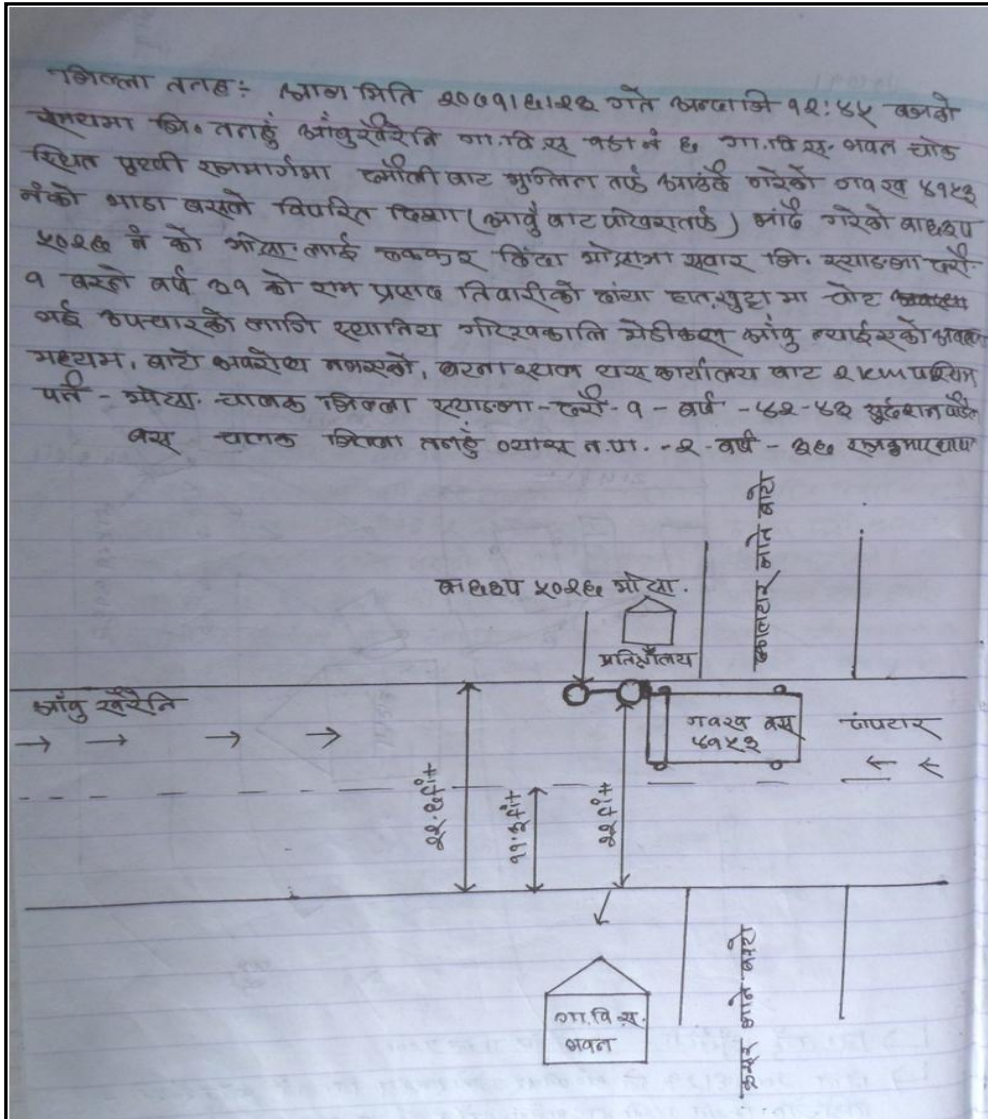 जिल्ला तनहुँ: आज मिति २०७१।६।२३ गते अन्दाजि १२:४५ बजेको
समयमा जि. तनहुँ आँबुखैरेनि गा.वि.स वडा नं ६ गा.वि.स. भवन चोक
स्थित पृथ्वी राजमार्गमा दमौली बाट मुग्लिन तर्फ आउँदै गरेको ग१ख ४१५३
नंको भाडा बसले विपरित दिशा (आबुँ बाट पोखरातर्फ) जाँदै गरेको बा६३प
५०२६ नं को मो.सा. लाई ठक्कर दिंदा मो.सा.मा सवार जि. स्याङजा
१ बस्ने वर्ष ३१ को राम प्रसाद तिवारीको दांया हात, खुट्टा मा चोट
भई उपचारको लागि स्थानिय मेडीकल आँबु ल्याईएको
मध्यम, बाटो अवरोध नभएको, घटना स्थल यस कार्यालय बाट २ KM पश्चिम
पर्ने - मो.सा. चालक जिल्ला स्याङजा - १ - वर्ष - ४२-४३
बस चालक जिल्ला तनहुँ व्यास न.पा. -२- वर्ष - ३६ राजकुमार थापा
बा६३प ५०२६ मो.सा.
प्रतिक्षालय
जाने बाटो
आँबु खैरेनि
ग१ख बस
४१५३
चांपटार
२२.६ फीट
११.३ फीट
२२ फीट
गा.वि.स.
भवन
जाने बाटो